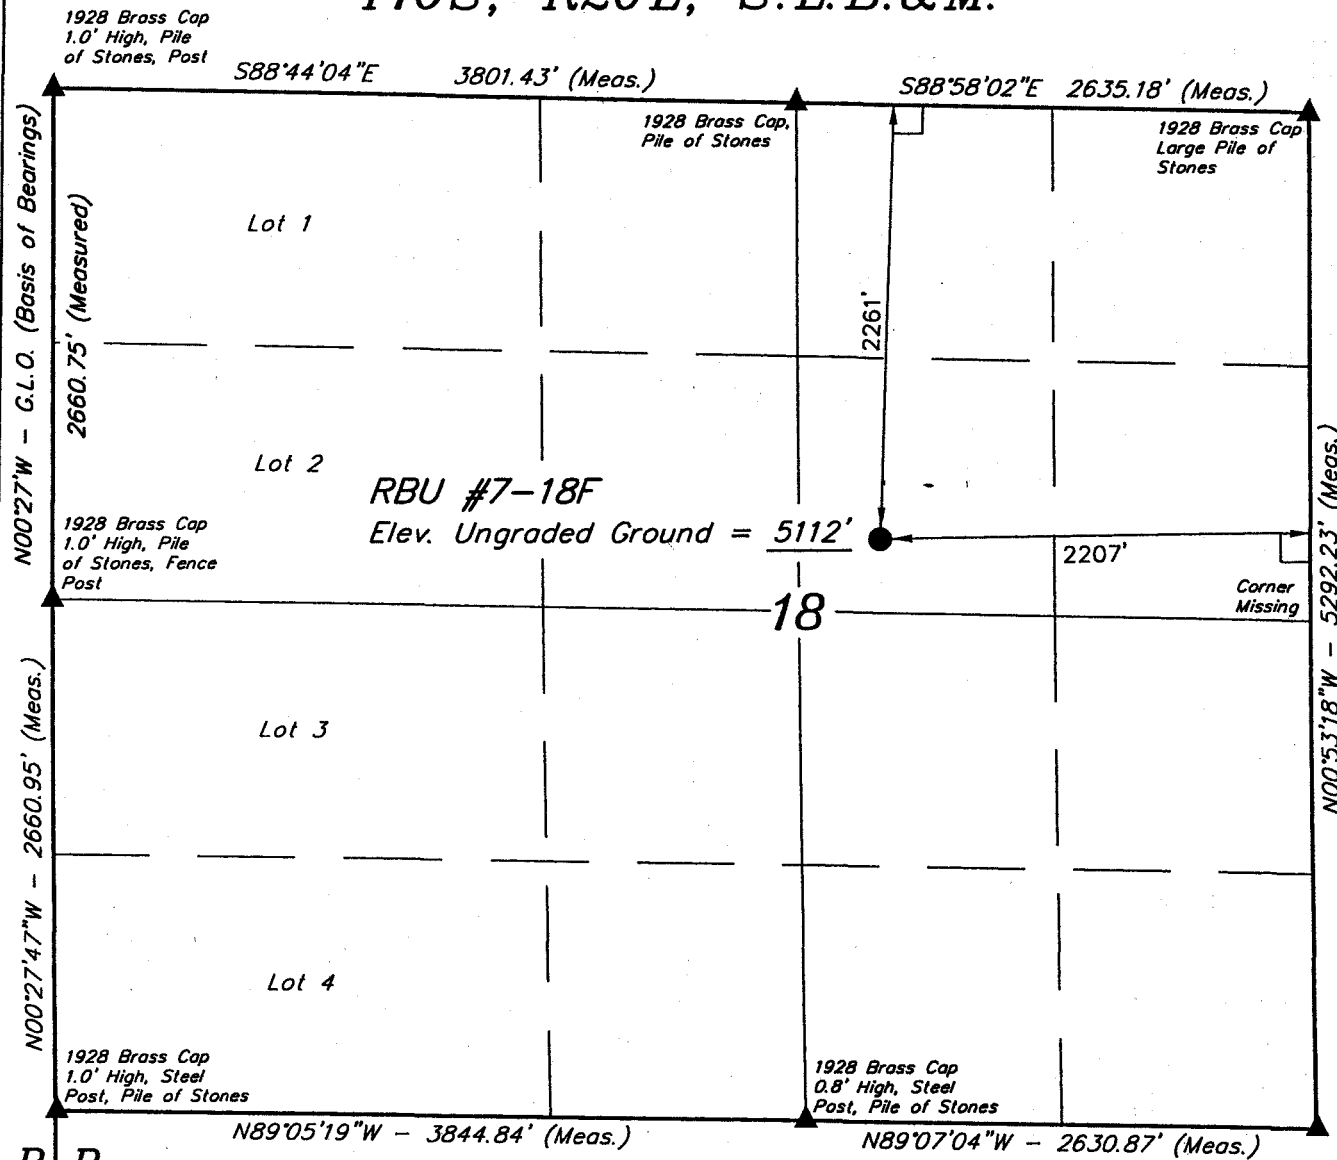 S.L.B.&M.
1928 Brass Cap
1.0' High, Pile
of Stones, Post
S88°44'04"E 3801.43' (Meas.)
S88°58'02"E 2635.18' (Meas.)
1928 Brass Cap,
Pile of Stones
1928 Brass Cap
Large Pile of
Stones
N00°27'W - G.L.O. (Basis of Bearings)
2660.75' (Measured)
Lot 1
2261'
Lot 2
RBU #7-18F
Elev. Ungraded Ground = 5112'
2207'
1928 Brass Cap
1.0' High, Pile
of Stones, Fence
Post
Corner
Missing
18
N00°53'18"W - 5292.23' (Meas.)
Lot 3
N00°27'47"W - 2660.95' (Meas.)
Lot 4
1928 Brass Cap
1.0' High, Steel
Post, Pile of Stones
1928 Brass Cap
0.8' High, Steel
Post, Pile of Stones
N89°05'19"W - 3844.84' (Meas.)
N89°07'04"W - 2630.87' (Meas.)